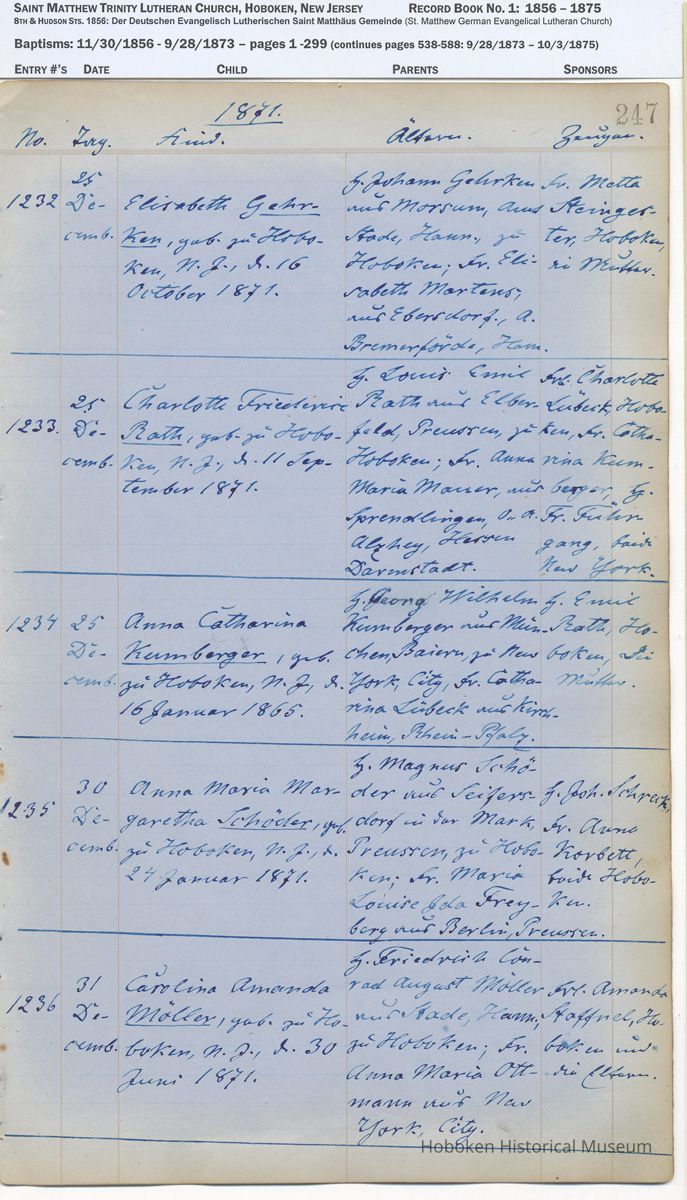 SAINT MATTHEW TRINITY LUTHERAN CHURCH, HOBOKEN, NEW JERSEY RECORD BOOK NO. 1: 1856 – 1875
8TH & HUDSON STS. 1856: Der Deutschen Evangelisch Lutherischen Saint Matthäus Gemeinde (St. Matthew German Evangelical Lutheran Church)
Baptisms: 11/30/1856 - 9/28/1873 – pages 1 -299 (continues pages 538-588: 9/28/1873 – 10/3/1875)
ENTRY #'S DATE CHILD PARENTS SPONSORS
1871.
247
No. Tag. Kind. Ältern. Zeugen.
1232
25
De-
cemb.
Elisabeth Gehr-
ken, geb. zu Hobo-
ken, N. J., d. 16
October 1871.
H. Johann Gehrken
aus Morsum, Amt
Stade, Hann., zu
Hoboken; Fr. Eli-
sabeth Martens,
aus Ebersdorf, A.
Bremerförde, Hann.
Fr. Metta
Steinges-
ter, Hoboken,
di Mutter.
1233.
25
De-
cemb.
Charlotte Friederice
Rath, geb. zu Hobo-
ken, N. J., d. 11 Sep-
tember 1871.
H. Louis Emil
Rath aus Elber-
feld, Preussen, zu
Hoboken; Fr. Anna
Maria Mauser, aus
Sprendlingen, O. A.
Alzhey, Hessen
Darmstadt.
Frl. Charlotte
Lübeck, Hobo-
ken, Fr. Catha-
rina Kum-
berger, H.
Fr. Führ-
gang, beide
New York.
1234
25
De-
cemb.
Anna Catharina
Kumberger, geb.
zu Hoboken, N. J., d.
16 Januar 1865.
H. Georg Wilhelm
Kumberger aus Mün-
chen, Baiern, zu New
York, City, Fr. Catha-
rina Lübeck aus Kirch-
heim, Rhein-Pfalz.
H. Emil
Rath, Ho-
boken, die
Mutter.
1235
30
De-
cemb.
Anna Maria Mar-
garetha Schöder, geb.
zu Hoboken, N. J., d.
24 Januar 1871.
H. Magnus Schö-
der aus Seifers-
dorf in der Mark,
Preussen, zu Hobo-
ken; Fr. Maria
Louise Ida Frey-
berg aus Berlin, Preussen.
H. Joh. Schreck,
Fr. Anna
Korbett,
beide Hobo-
ken.
1236
31
De-
cemb.
Carolina Amanda
Möller, geb. zu Ho-
boken, N. J., d. 30
Juni 1871.
H. Friedrich Con-
rad August Möller
aus Stade, Hann.,
zu Hoboken; Fr.
Anna Maria Ott-
mann aus New
York, City.
Frl. Amanda
Stoffnel, Ho-
boken und
die Eltern.
Hoboken Historical Museum